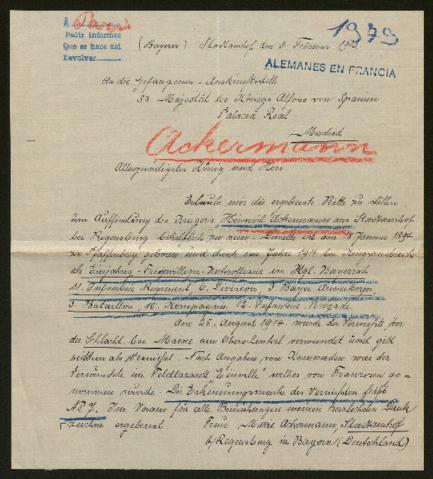 Á
Pedir informes
Que se hace del
Devolver
1979
ALEMANES EN FRANCIA
(Bayern) Stadtamhof den 9. Februar
An die Gefangenen-Auskunftstelle
Sr. Majestät des Königs Alfons von Spanien
Palacia Real
Madrid
Ackermann
Allergnädigster König und Herr
Erlaubt mir die ergebenste Bitte zu stellen
um Auffindung des Kriegers Heinrich Ackermann aus Stadtamhof
bei Regensburg behilflich zu sein. Derselbe ist am Januar 1894
zu Pfaffenberg geboren und durch im Jahre 1914 bei
als Einjährig-Freiwilliger-Unteroffizier im Kgl. Bayerisch
11. Infanterie Regiment 6. Division, 3. Bayer. Armeekorps
3. Bataillon 10. Kompagnie 12. Infanterie Brigade
Am 25. August 1914 wurde der Vermisste in
der Schlacht bei Maixe am verwundet und gilt
seitdem als vermisst. Nach Angaben von Kameraden war der
Verwundete im Feldlazarett Einville welches von Franzosen ge-
nommen wurde. Die Erkennungsmarke des Vermissten
No 7. Im Voraus für alle Bemühungen meinen herzlichsten Dank
zeichne ergebenst Frau Marie Ackermann, Stadtamhof
b/Regensburg in Bayern (Deutschland)